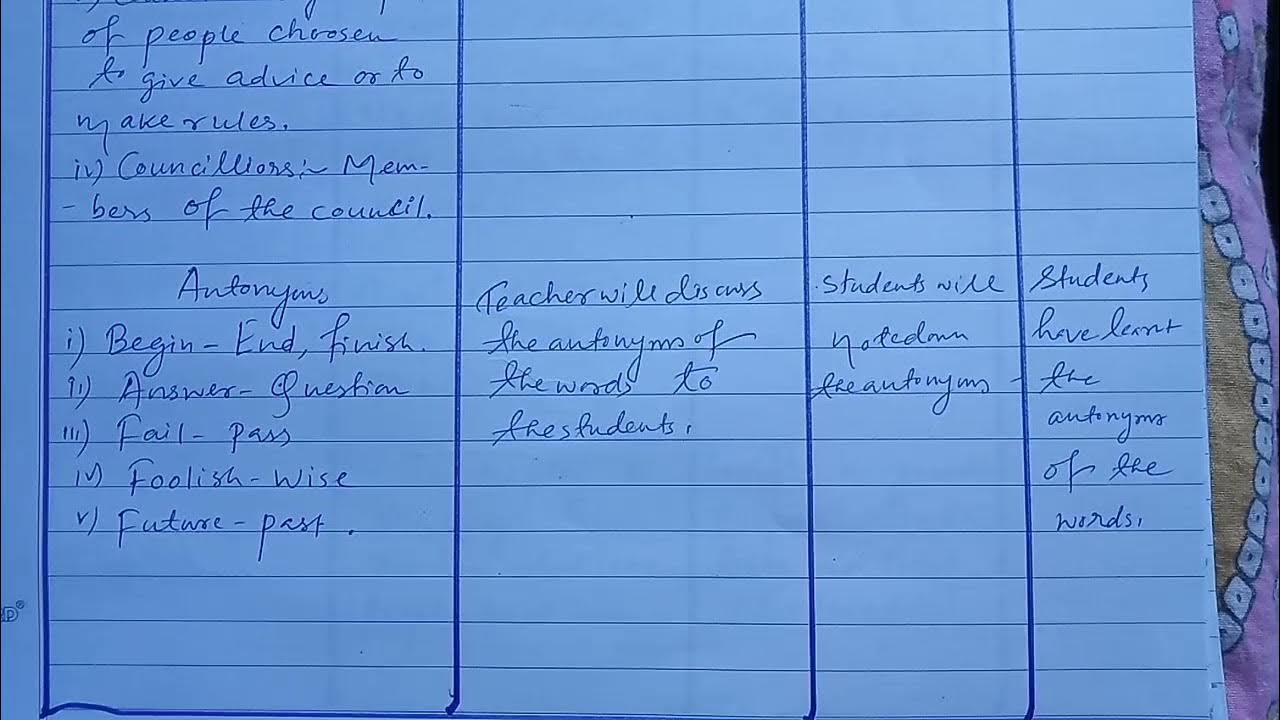 of people choosen
to give advice or to
make rules.
iv) Councilliors:~ Mem-
- bers of the council.
Antonyms
i) Begin - End, finish.
ii) Answer - Question
iii) Fail - pass
iv) Foolish - Wise
v) Future - past.
Teacher will discuss
the antonyms of
the words to
the students.
Students will
note down
the antonyms -
Students
have learnt
the
antonyms
of the
words.